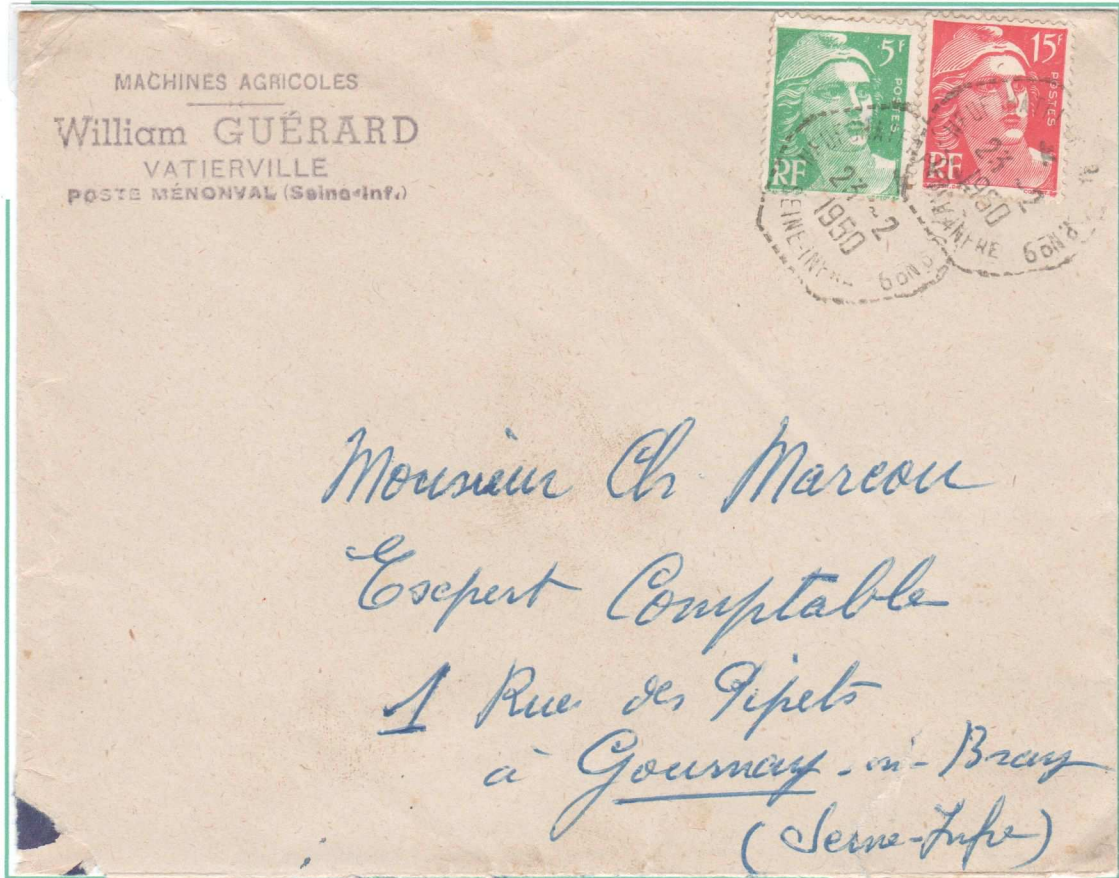 MACHINES AGRICOLES
William GUÉRARD
VATIERVILLE
POSTE MÉNONVAL (Seine-Inf.)
5F
POSTES
RF
15F
POSTES
RF
1950
SEINE-INFRE
1950
INFRE
Monsieur Ch Marcou
Expert Comptable
1 Rue des Pipets
à Gournay-en-Bray
(Seine-Infre)